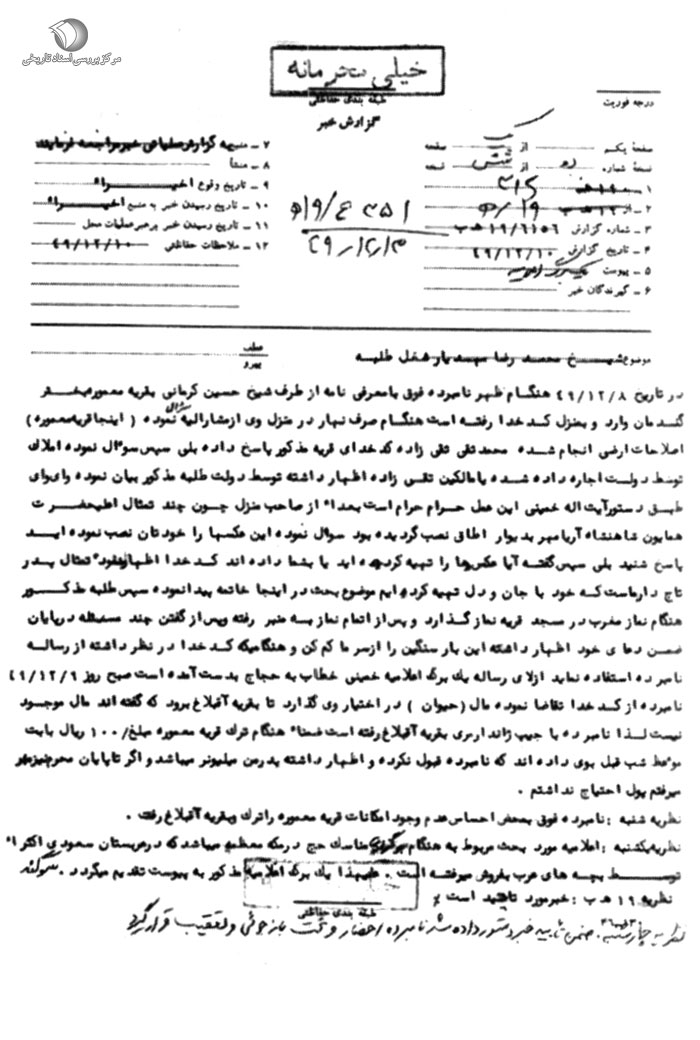 مرکز بررسی اسناد تاریخی
خیلی محرمانه
طبقه بندی حفاظتی
گزارش خبر
درجه فوریت
صفحه یکم از صفحه
نسخه شماره دو از شش نسخه
۱ - ۳۱۵
۲ - از ۱۹ / ه‍
۳ - شماره گزارش ۱۹/۶۱۵۶ ه‍ ب
۴ - تاریخ گزارش ۴۹/۱۲/۱۰
۵ - پیوست یکبرگ اعلامیه
۶ - گیرندگان خبر
۷ - منبع به گزارش عملیاتی خبر مراجعه فرمایند
۸ - منشأ
۹ - تاریخ وقوع اخیراً
۱۰ - تاریخ رسیدن خبر به منبع اخیراً
۱۱ - تاریخ رسیدن خبر برهبر عملیات محل
۱۲ - ملاحظات حفاظتی ۴۹/۱۲/۱۰
موضوع شیخ محمد رضا مهدیار شغل طلبه
عطف
پیرو
در تاریخ ۴۹/۱۲/۸ هنگام ظهر نامبرده فوق با معرفی نامه از طرف شیخ حسین کرمانی بقریه معموره بخش
گندمان وارد و بمنزل کدخدا رفته است هنگام صرف نهار در منزل وی از مشارالیه سئوالی نموده ( اینجا قریه معموره )
اصلاحات ارضی انجام شده محمد تقی تقی زاده کدخدای قریه مذکور پاسخ داده بلی سپس سوال نموده املاک
توسط دولت اجاره داده شده یا مالکین تقی زاده اظهار داشته توسط دولت طلبه مذکور بیان نموده وای وای
طبق دستور آیت اله خمینی این عمل حرام حرام است بعداً از صاحب منزل چون چند تمثال اعلیحضرت
همایون شاهنشاه آریامهر بدیوار اطاق نصب گردیده بود سوال نموده این عکسها را خودتان نصب نموده اید
پاسخ شنید بلی سپس گفته آیا عکسها را تهیه کرده اید یا بشما داده اند کدخدا اظهار نموده تمثال پدر
تاج دار ماست که خود با جان و دل تهیه کرده ایم موضوع بحث در اینجا خاتمه پیدا نموده سپس طلبه مذکور
هنگام نماز مغرب در مسجد قریه نماز گذارد و پس از اتمام نماز به منبر رفته و پس از گفتن چند مسئله در پایان
ضمن دعای خود اظهار داشته این بار سنگین را از سر ما کم کن و هنگامیکه کدخدا در نظر داشته از رساله
نامبرده استفاده نماید از لای رساله یک برگ اعلامیه خمینی خطاب به حجاج بدست آمده است صبح روز ۴۹/۱۲/۹
نامبرده از کدخدا تقاضا نموده مال (حیوان ) در اختیار وی گذارد تا بقریه آقبلاغ برود که گفته اند مال موجود
نیست لذا نامبرده با جیپ ژاندارمری بقریه آقبلاغ رفته است ضمناً هنگام ترک قریه معموره مبلغ /۱۰۰ ریال بابت
موعظه شب قبل بوی داده اند که نامبرده قبول نکرده و اظهار داشته پدر من میلیونر میباشد و اگر تا پایان محرم نیز منبر
میرفتم پول احتیاج نداشتم .
نظریه شنبه : نامبرده فوق بمحض احساس عدم وجود امکانات قریه معموره را ترک و بقریه آقبلاغ رفت .
نظریه یکشنبه : اعلامیه مورد بحث مربوط به هنگام برگزاری مناسک حج در مکه معظمه میباشد که در عربستان سعودی اکثراً
توسط بچه های عرب بفروش میرفته است . علیهذا یک برگ اعلامیه مذکور به پیوست تقدیم میگردد .
نظریه ۱۹ ه‍ ب : خبر مورد تایید است
طبقه بندی حفاظتی
نظریه چهارشنبه . ضمن تایید خبر دستور داده شد نامبرده احضار و تحت بازجوئی و تعقیب قرار گیرد